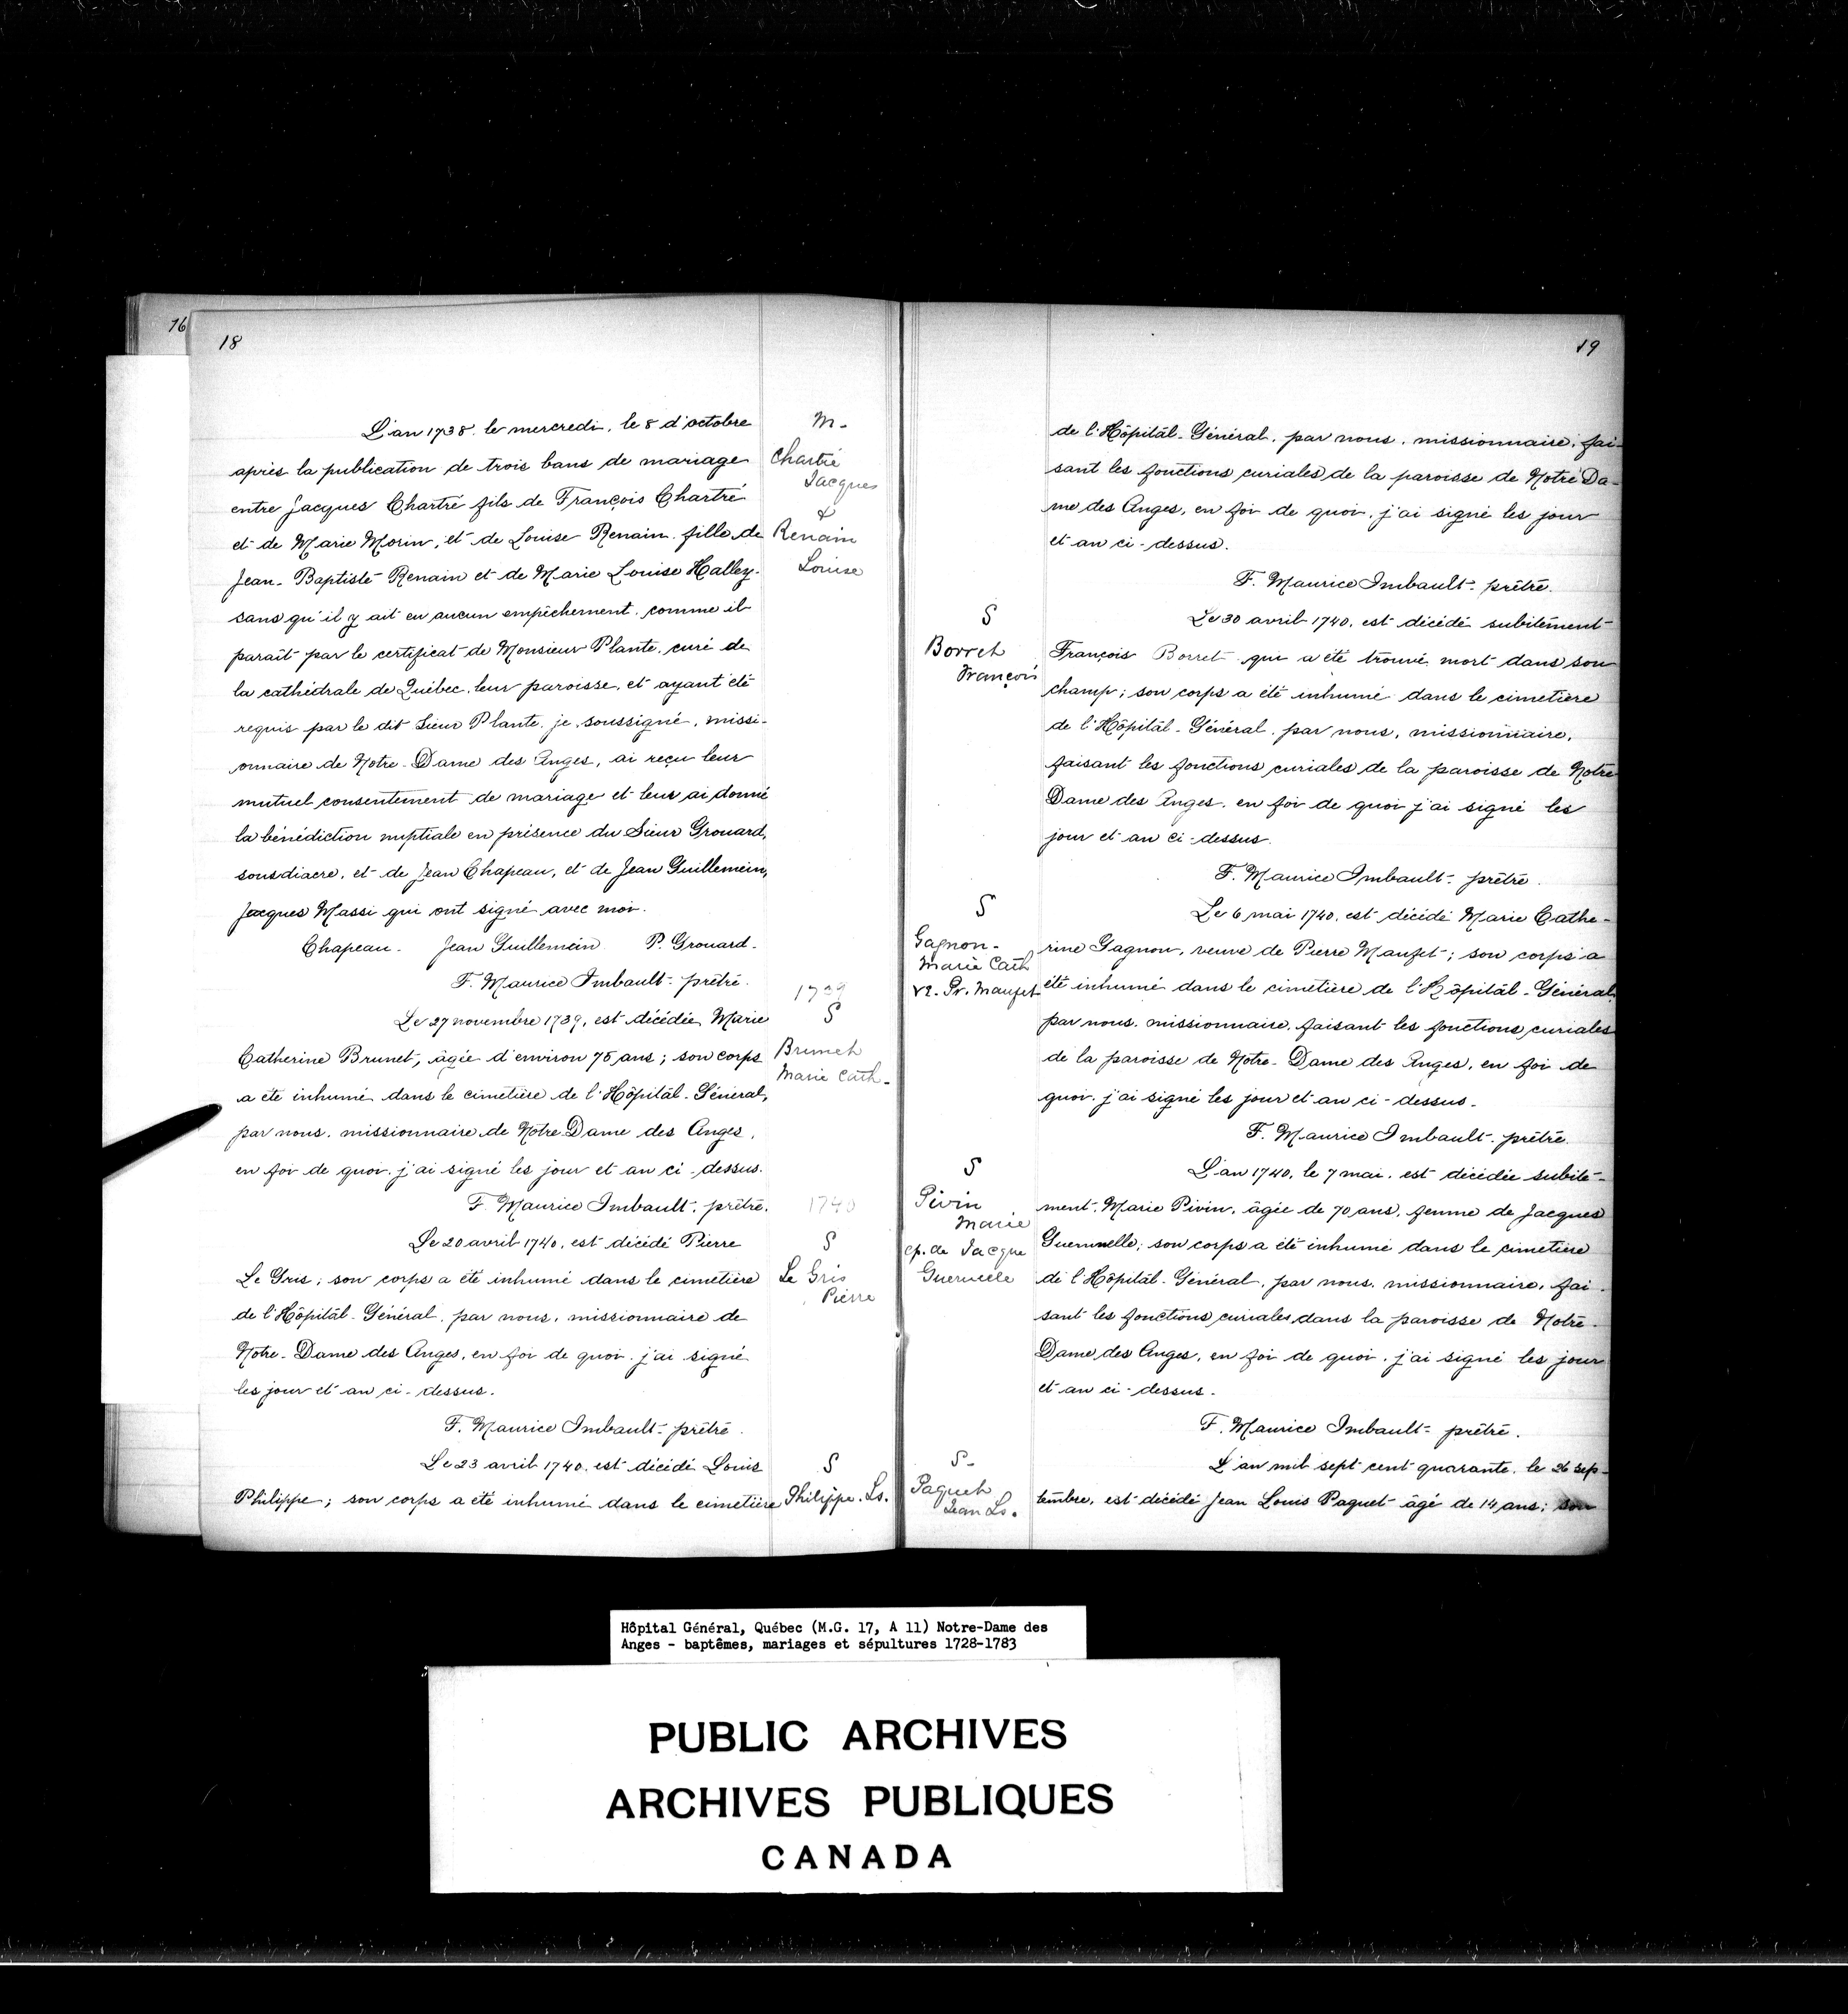 16
18
L'an 1738. le mercredi, le 8 d'octobre
après la publication de trois bans de mariage
entre Jacques Chartré fils de François Chartré
et de Marie Morin, et de Louise Renain fille de
Jean-Baptiste Renain et de Marie Louise Halley.
sans qu'il y ait eu aucun empêchement, comme il
parait par le certificat de Monsieur Plante, curé de
la cathédrale de Québec, leur paroisse, et ayant été
requis par le dit Sieur Plante, je, soussigné, missi-
onnaire de Notre-Dame des Anges, ai reçu leur
mutuel consentement de mariage et leur ai donné
la bénédiction nuptiale en présence du Sieur Grouard,
sousdiacre, et de Jean Chapeau, et de Jean Guillemein,
Jacques Massi qui ont signé avec moi.
Chapeau- Jean Guillemein P. Grouard-
F. Maurice Imbault- prêtre.
Le 27 novembre 1739, est décédée Marie
Catherine Brunet, âgée d'environ 75 ans; son corps
a été inhumé dans le cimetière de l'Hôpital-Général,
par nous, missionnaire de Notre Dame des Anges,
en foi de quoi, j'ai signé les jour et an ci-dessus.
F. Maurice Imbault, prêtre.
Le 20 avril 1740, est décédé Pierre
Le Gris; son corps a été inhumé dans le cimetière
de l'Hôpital-Général, par nous, missionnaire de
Notre-Dame des Anges, en foi de quoi, j'ai signé
les jour et an ci-dessus.
F. Maurice Imbault- prêtre.
Le 23 avril 1740, est décédé Louis
Philippe; son corps a été inhumé dans le cimetière
M-
Chartré
Jacques
&
Renain
Louise
1739
S
Brunet
Marie Cath-
1740
S
Le Gris
Pierre
S
Philippe. Ls.
19
de l'Hôpital-Général, par nous, missionnaire, fai-
sant les fonctions curiales de la paroisse de Notre Da-
me des Anges, en foi de quoi, j'ai signé les jour
et an ci-dessus.
F. Maurice Imbault- prêtre.
Le 30 avril 1740, est décédé subitement
François Borret qui a été trouvé mort dans son
champ; son corps a été inhumé dans le cimetière
de l'Hôpital-Général, par nous, missionnaire,
faisant les fonctions curiales de la paroisse de Notre
Dame des Anges, en foi de quoi j'ai signé les
jour et an ci-dessus.
F. Maurice Imbault- prêtre.
Le 6 mai 1740, est décédé Marie Cathe-
rine Gagnon, veuve de Pierre Maufet; son corps a
été inhumé dans le cimetière de l'Hôpital-Général
par nous, missionnaire, faisant les fonctions curiales
de la paroisse de Notre-Dame des Anges, en foi de
quoi, j'ai signé les jour et an ci-dessus.
F. Maurice Imbault- prêtre.
L'an 1740, le 7 mai, est décédée subite-
ment, Marie Pivin, âgée de 70 ans, femme de Jacques
Guerunelle; son corps a été inhumé dans le cimetière
de l'Hôpital-Général, par nous, missionnaire, fai-
sant les fonctions curiales dans la paroisse de Notre-
Dame des Anges, en foi de quoi, j'ai signé les jour
et an ci-dessus.
F. Maurice Imbault- prêtre.
L'an mil sept cent quarante, le 26 sep-
tembre, est décédé Jean Louis Paquet âgé de 14 ans; son
S
Borret
François
S
Gagnon-
Marie Cath
ve. Pr. Maufet
S
Pivin
Marie
ep. de Jacque
S-
Paquet
Jean Ls.
Hôpital Général, Québec (M.G. 17, A 11) Notre-Dame des
Anges - baptêmes, mariages et sépultures 1728-1783
PUBLIC ARCHIVES
ARCHIVES PUBLIQUES
CANADA